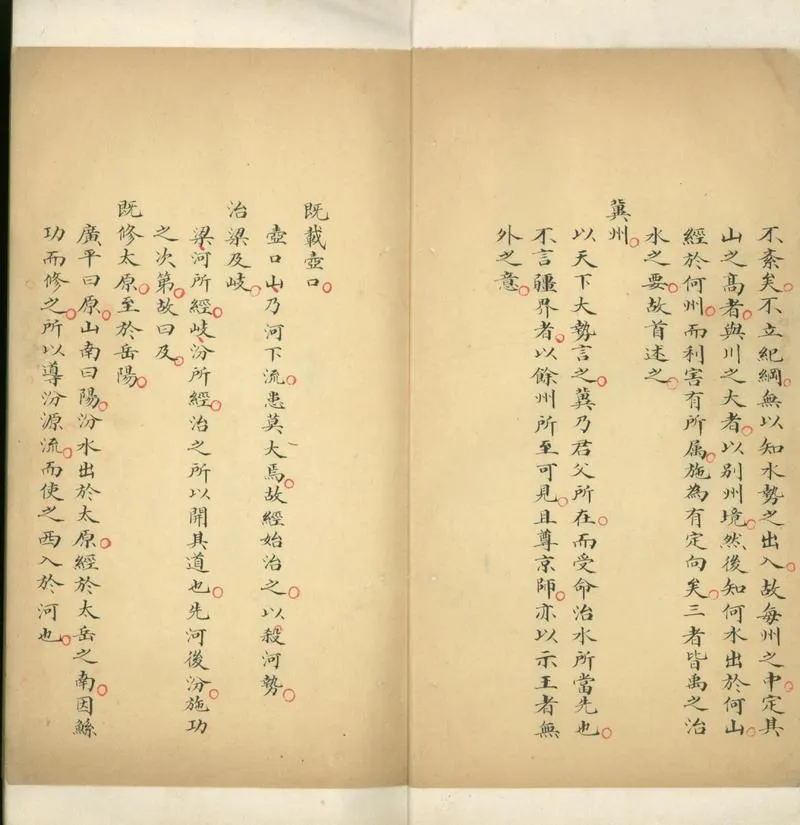 不紊矣不立紀綱無以知水勢之出入故每州之中定其
山之髙者與川之大者以別州境然後知何水出於何山
經於何州而利害有所属施為有定向矣三者皆禹之治
水之要故首述之
冀州
以天下大勢言之冀乃君父所在而受命治水所當先也
不言疆界者以餘州所至可見且尊京師亦以示王者無
外之意
既載壺口
壺口山乃河下流患莫大焉故經始治之以殺河勢
治梁及岐
梁河所經岐汾所經治之所以開其道也先河後汾施功
之次第故曰及
既修太原至於岳陽
廣平曰原山南曰陽汾水出於太原經於太岳之南因鯀
功而修之所以導汾源流而使之西入於河也